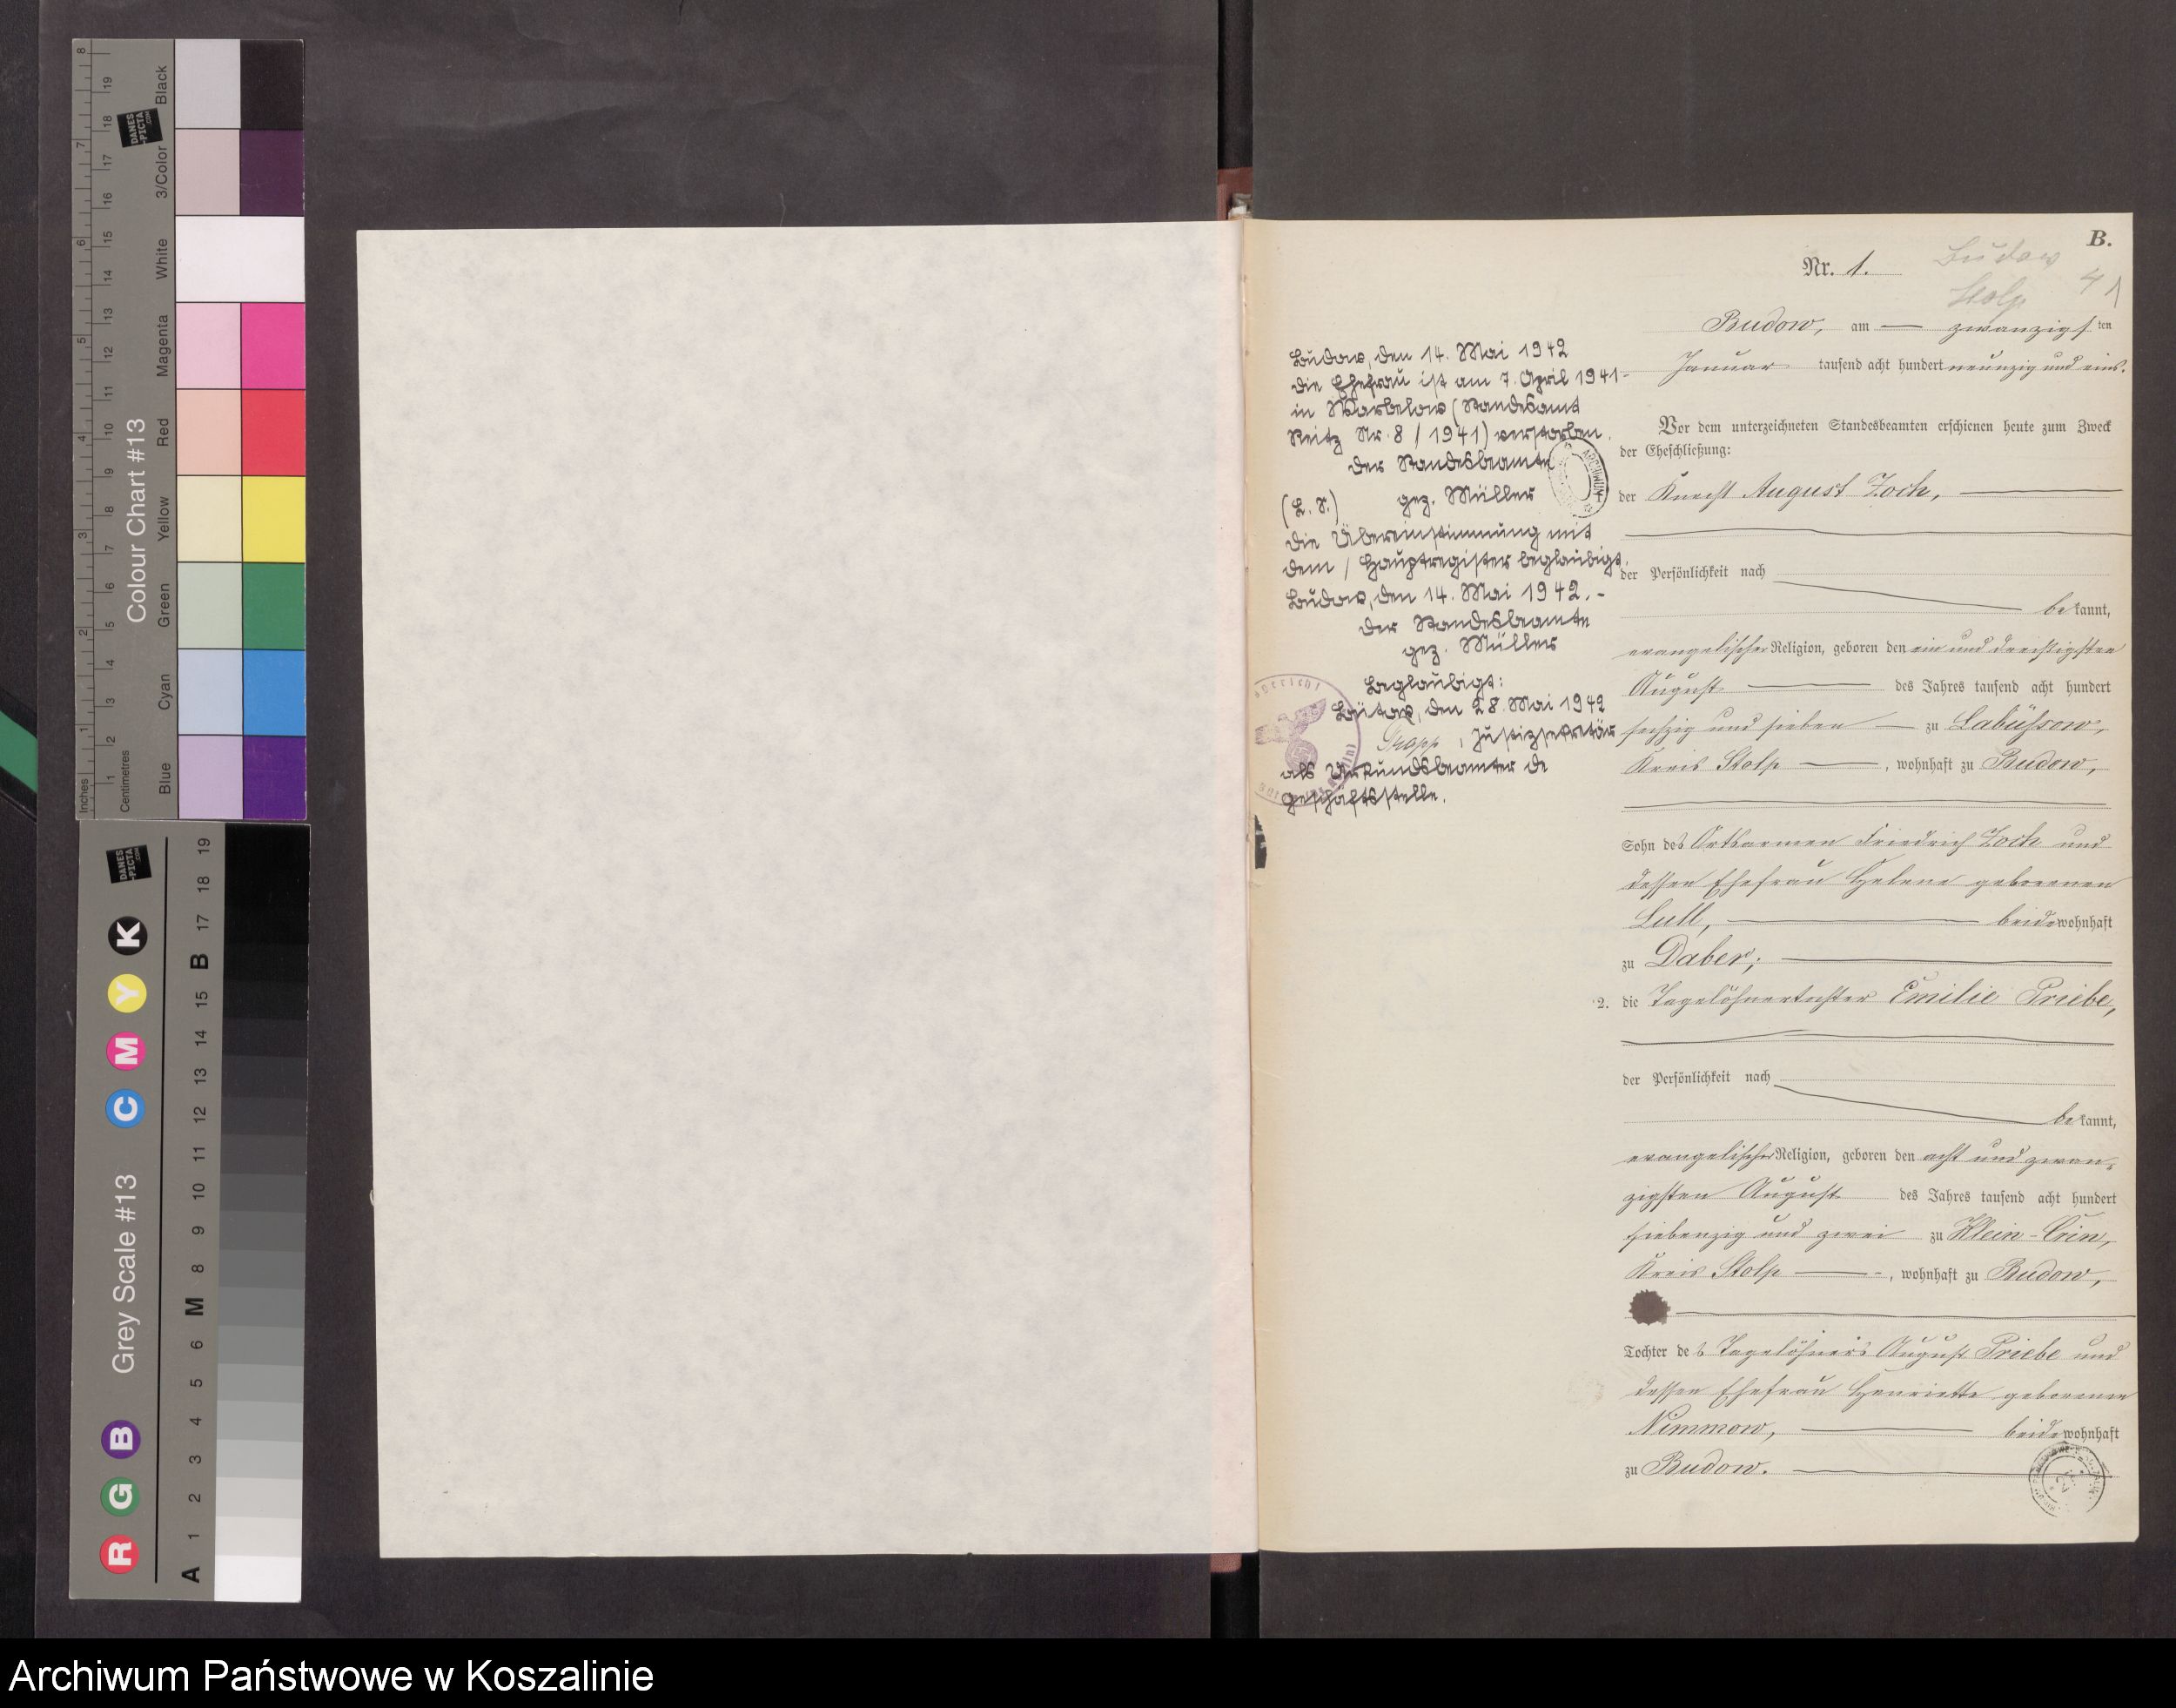 B.
Nr. 1.
Budow
Stolp
41
Budow, am zwanzigsten
Januar tausend acht hundert neunzig und eins.
Vor dem unterzeichneten Standesbeamten erschienen heute zum Zweck
der Eheschließung:
der Knecht August Zoch,
der Persönlichkeit nach
bekannt,
evangelischer Religion, geboren den ein und dreißigsten
August des Jahres tausend acht hundert
sechzig und sieben zu Labüssow,
Kreis Stolp, wohnhaft zu Budow,
Sohn des Ortsarmen Friedrich Zoch und
dessen Ehefrau Helene geborenen
Lull, beide wohnhaft
zu Daber;
2. die Tagelöhnertochter Emilie Priebe,
der Persönlichkeit nach
bekannt,
evangelischer Religion, geboren den acht und zwan-
zigsten August des Jahres tausend acht hundert
siebenzig und zwei zu Klein-Crien,
Kreis Stolp, wohnhaft zu Budow,
Tochter des Tagelöhners August Priebe und
dessen Ehefrau Henriette geborenen
Nimmow, beide wohnhaft
zu Budow.
Budow, den 14. Mai 1942
Die Ehefrau ist am 7. April 1941-
in Warbelow (Standesamt
Reitz Nr. 8 / 1941) verstorben.
Der Standesbeamte
(L. S.) gez. Müller
Die Übereinstimmung mit
dem Hauptregister beglaubigt.
Budow, den 14. Mai 1942.-
Der Standesbeamte
gez. Müller
Beglaubigt:
Bütow, den 28. Mai 1942
, Justizsekretär
als Urkundsbeamter de
Geschäftsstelle.
ARCHIWUM
Colour Chart #13
Inches
Centimetres
Blue
Cyan
Green
Yellow
Red
Magenta
White
3/Color
Black
DANES
-PICTA
.COM
Grey Scale #13
R G B
C M Y K
A 1 2 3 4 5 6 M 8 9 10 11 12 13 14 15 B 17 18 19
Archiwum Państwowe w Koszalinie